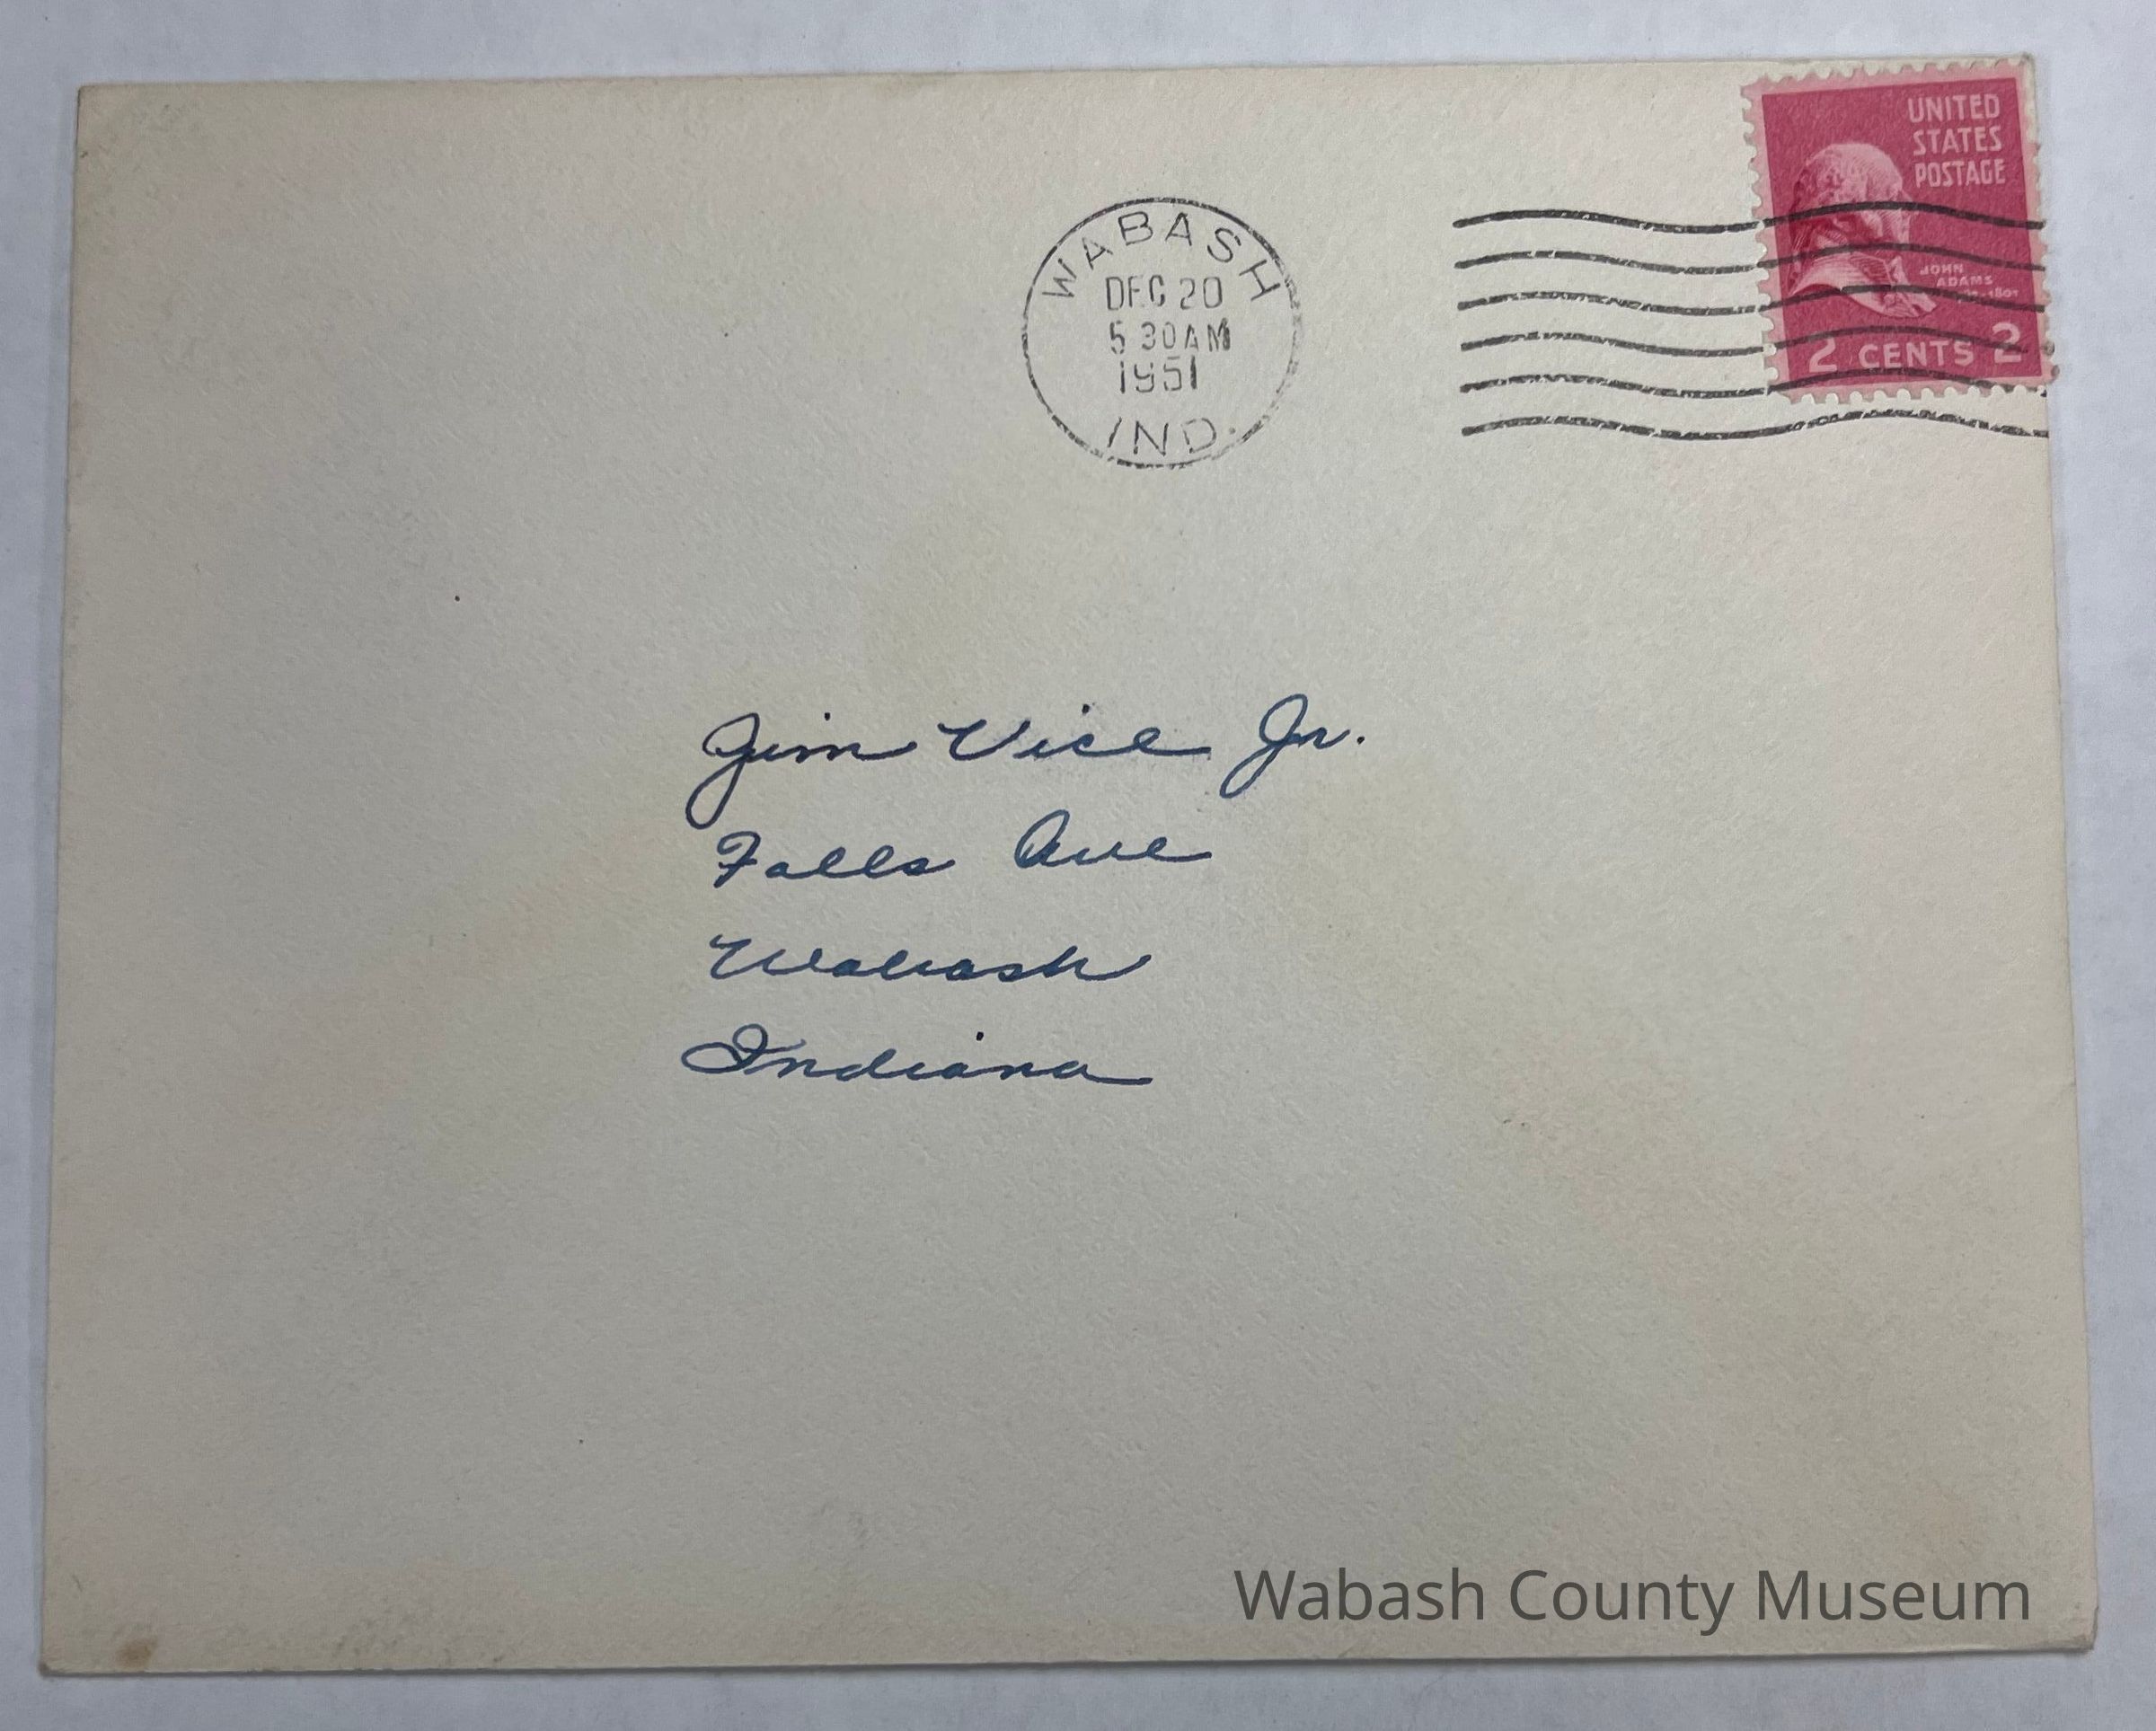 UNITED
STATES
POSTAGE
JOHN
ADAMS
2 CENTS 2
WABASH
DEC 20
5 30 AM
1951
IND.
Jim Vice Jr.
Falls Ave
Wabash
Indiana
Wabash County Museum